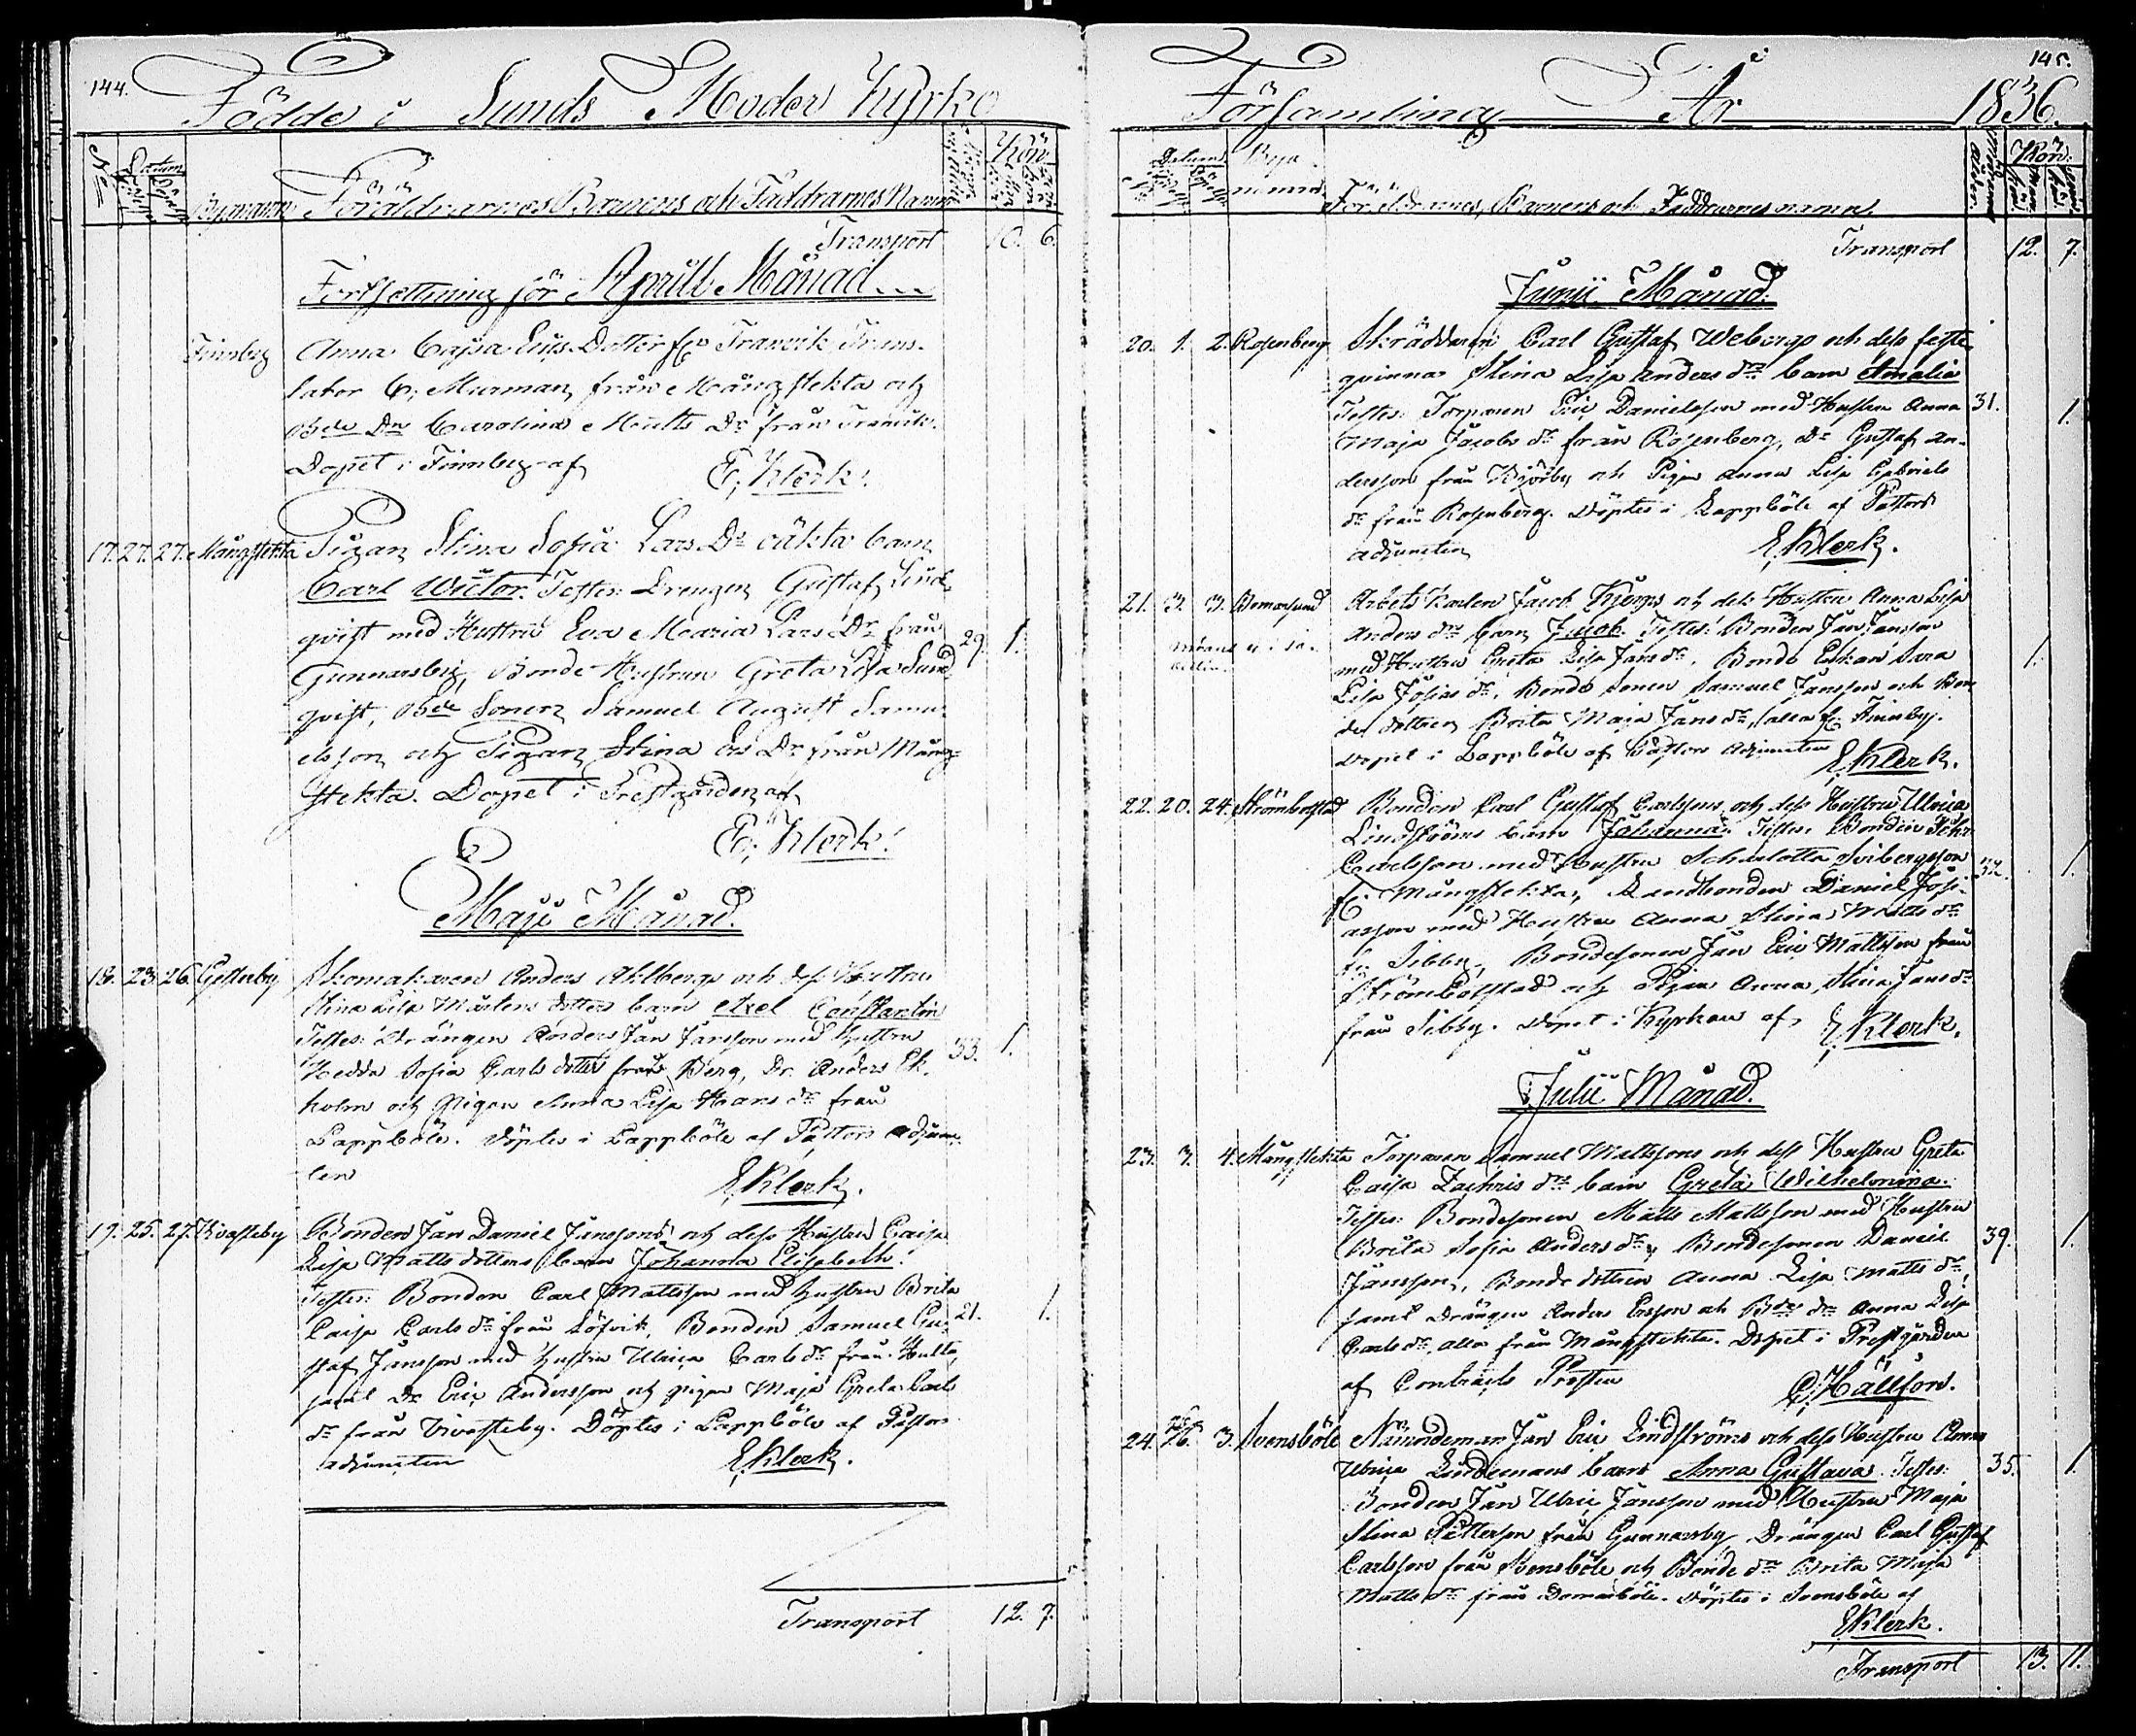 144.
Födde i Sunds Moder Kyrko
No Datum
Bynamn Föräldrarnes Barnens och Faddrarnes Namn Kön
Transport 10. 6.
Fortsettning för Aprill Månad
Finnby Anna Cajsa Eriks Dotter fr Tranvik Trans-
lator C. Murman från Mångstekta och
Bde Dn Carolina Matts Dr från Tranvik.
Dopet i Finnby af
E. Klerk.
17. 27. 27. Mångstekta Pigan Stina Sofia Lars Dr oäkta barn
Carl Wictor. Testes: Drengen Gustaf Lind-
qvist med Hustru Eva Maria Lars Dr från 29. 1.
Gunnarsby, Bonde Hustrun Greta Lisa Lund
qvist, Bde Sonen Samuel August Samu-
elsson och Pigan Stina Ers Dr från Mång-
stekta. Dopet i Prestgården af
E. Klerk.
Maji Månad.
18. 23. 26. Gesterby Skomakaren Anders Ahlbergs och dess Hustru
Stina Lisa Mårtens dotters barn Axel Constantin
Testes: Drängen Anders Jan Jansson med Hustru
Hedda Sofia Carls dotter från Berg, Dr. Anders Ek- 33. 1.
holm och Pigan Anna Lisa Hans dr från
Lappböle. Döptes i Lappböle af Pastors adjunc-
ten
E. Klerk.
19. 25. 27. Kvasteby Bonden Jan Daniel Janssons och dess Hustru Caisa
Lisa Mattsdotters barn Johanna Elisabeth.
Testes: Bonden Carl Mattsson med Hustru Brita
Caisa Carls dr från Löfvik, Bonden Samuel Gu- 21. 1.
staf Jansson med Hustru Ulrica Carls dr från Hulta,
samt Dr Eric Andersson och pigan Maja Greta Carls
dr från Kvasteby. Döptes i Lappböle af Pastors
adjuncten
E. Klerk.
Transport 12. 7.
145.
Församling År 1836.
Datum Bya namn
Föräldrarnes, Barnens och Faddrarnes namn. Kön.
Transport 12. 7.
Junii Månad.
20. 1. 2. Rosenberg Skräddaren Carl Gustaf Webergs och dess feste-
qvinna Stina Lisa Anders drs barn Amalia
Testes: Torparen Eric Danielsson med Hustru Anna 31. 1.
Maja Jacobs dr från Rosenberg, Dr Gustaf An-
dersson från Björby och Pigan Anna Lisa Gabriels
dr från Rosenberg. Döptes i Lappböle af Pastors
adjuncten
E. Klerk.
21. 3. 3. Bomarsund Arbets Karlen Jacob Kjörgs och dess Hustru Anna Lisa
Anders drs barn Jacob. Testes: Bonden Jan Jansson
med Hustru Greta Lisa Jans dr, Bonde Enkan Sara 1.
Lisa Josias dr, Bonde Sonen Samuel Jansson och Bon
de dottren Brita Maja Jans dr, alla fr Finnby.
Dopet i Lappböle af Pastors adjuncten
E. Klerk.
22. 20. 24. Strömbolstad Bonden Carl Gustaf Carlssons och dess Hustru Ulrica
Lindströms barn Johanna. Testes: Bonden Joh:
Carlsson med Hustru Scharlotta Svibergsson 32. 1.
fr Mångstekta, Landbonden Daniel Josi-
asson med Hustru Anna Stina Matts dr
fr Sibby, Bondesonen Jan Eric Mattsson från
Strömbolstad och Pigan Anna Stina Jans dr
från Sibby. Dopet i Kyrkan af
E. Klerk.
Julii Månad.
23. 3. 4. Mångstekta Torparen Samuel Mattssons och dess Hustru Greta
Caisa Zachris drs barn Greta Wilhelmina.
Testes: Bondesonen Matts Mattsson med Hustru
Brita Sofia Anders dr, Bondesonen Daniel 39. 1.
Jansson, Bonde dottren Anna Lisa Matts dr,
samt Drängen Anders Ersson och Bde dr Anna Lisa
Carls dr, alla från Mångstekta. Dopet i Prestgården
af Contracts Prosten
C. Hällfors.
24. 3. Svensböle Nämndeman Jan Eric Lindströms och dess Hustru Anna
Ulrica Lindemans barn Anna Gustava. Testes: 35. 1.
Bonden Jan Ulric Jansson med Hustru Maja
Stina Pettersson från Gunnarsby, Drängen Carl Gustaf
Carlsson från Svensböle och Bonde dr Brita Maja
Matts dr från Domarböle. Döptes i Svensböle af
E. Klerk.
Transport 13. 11.